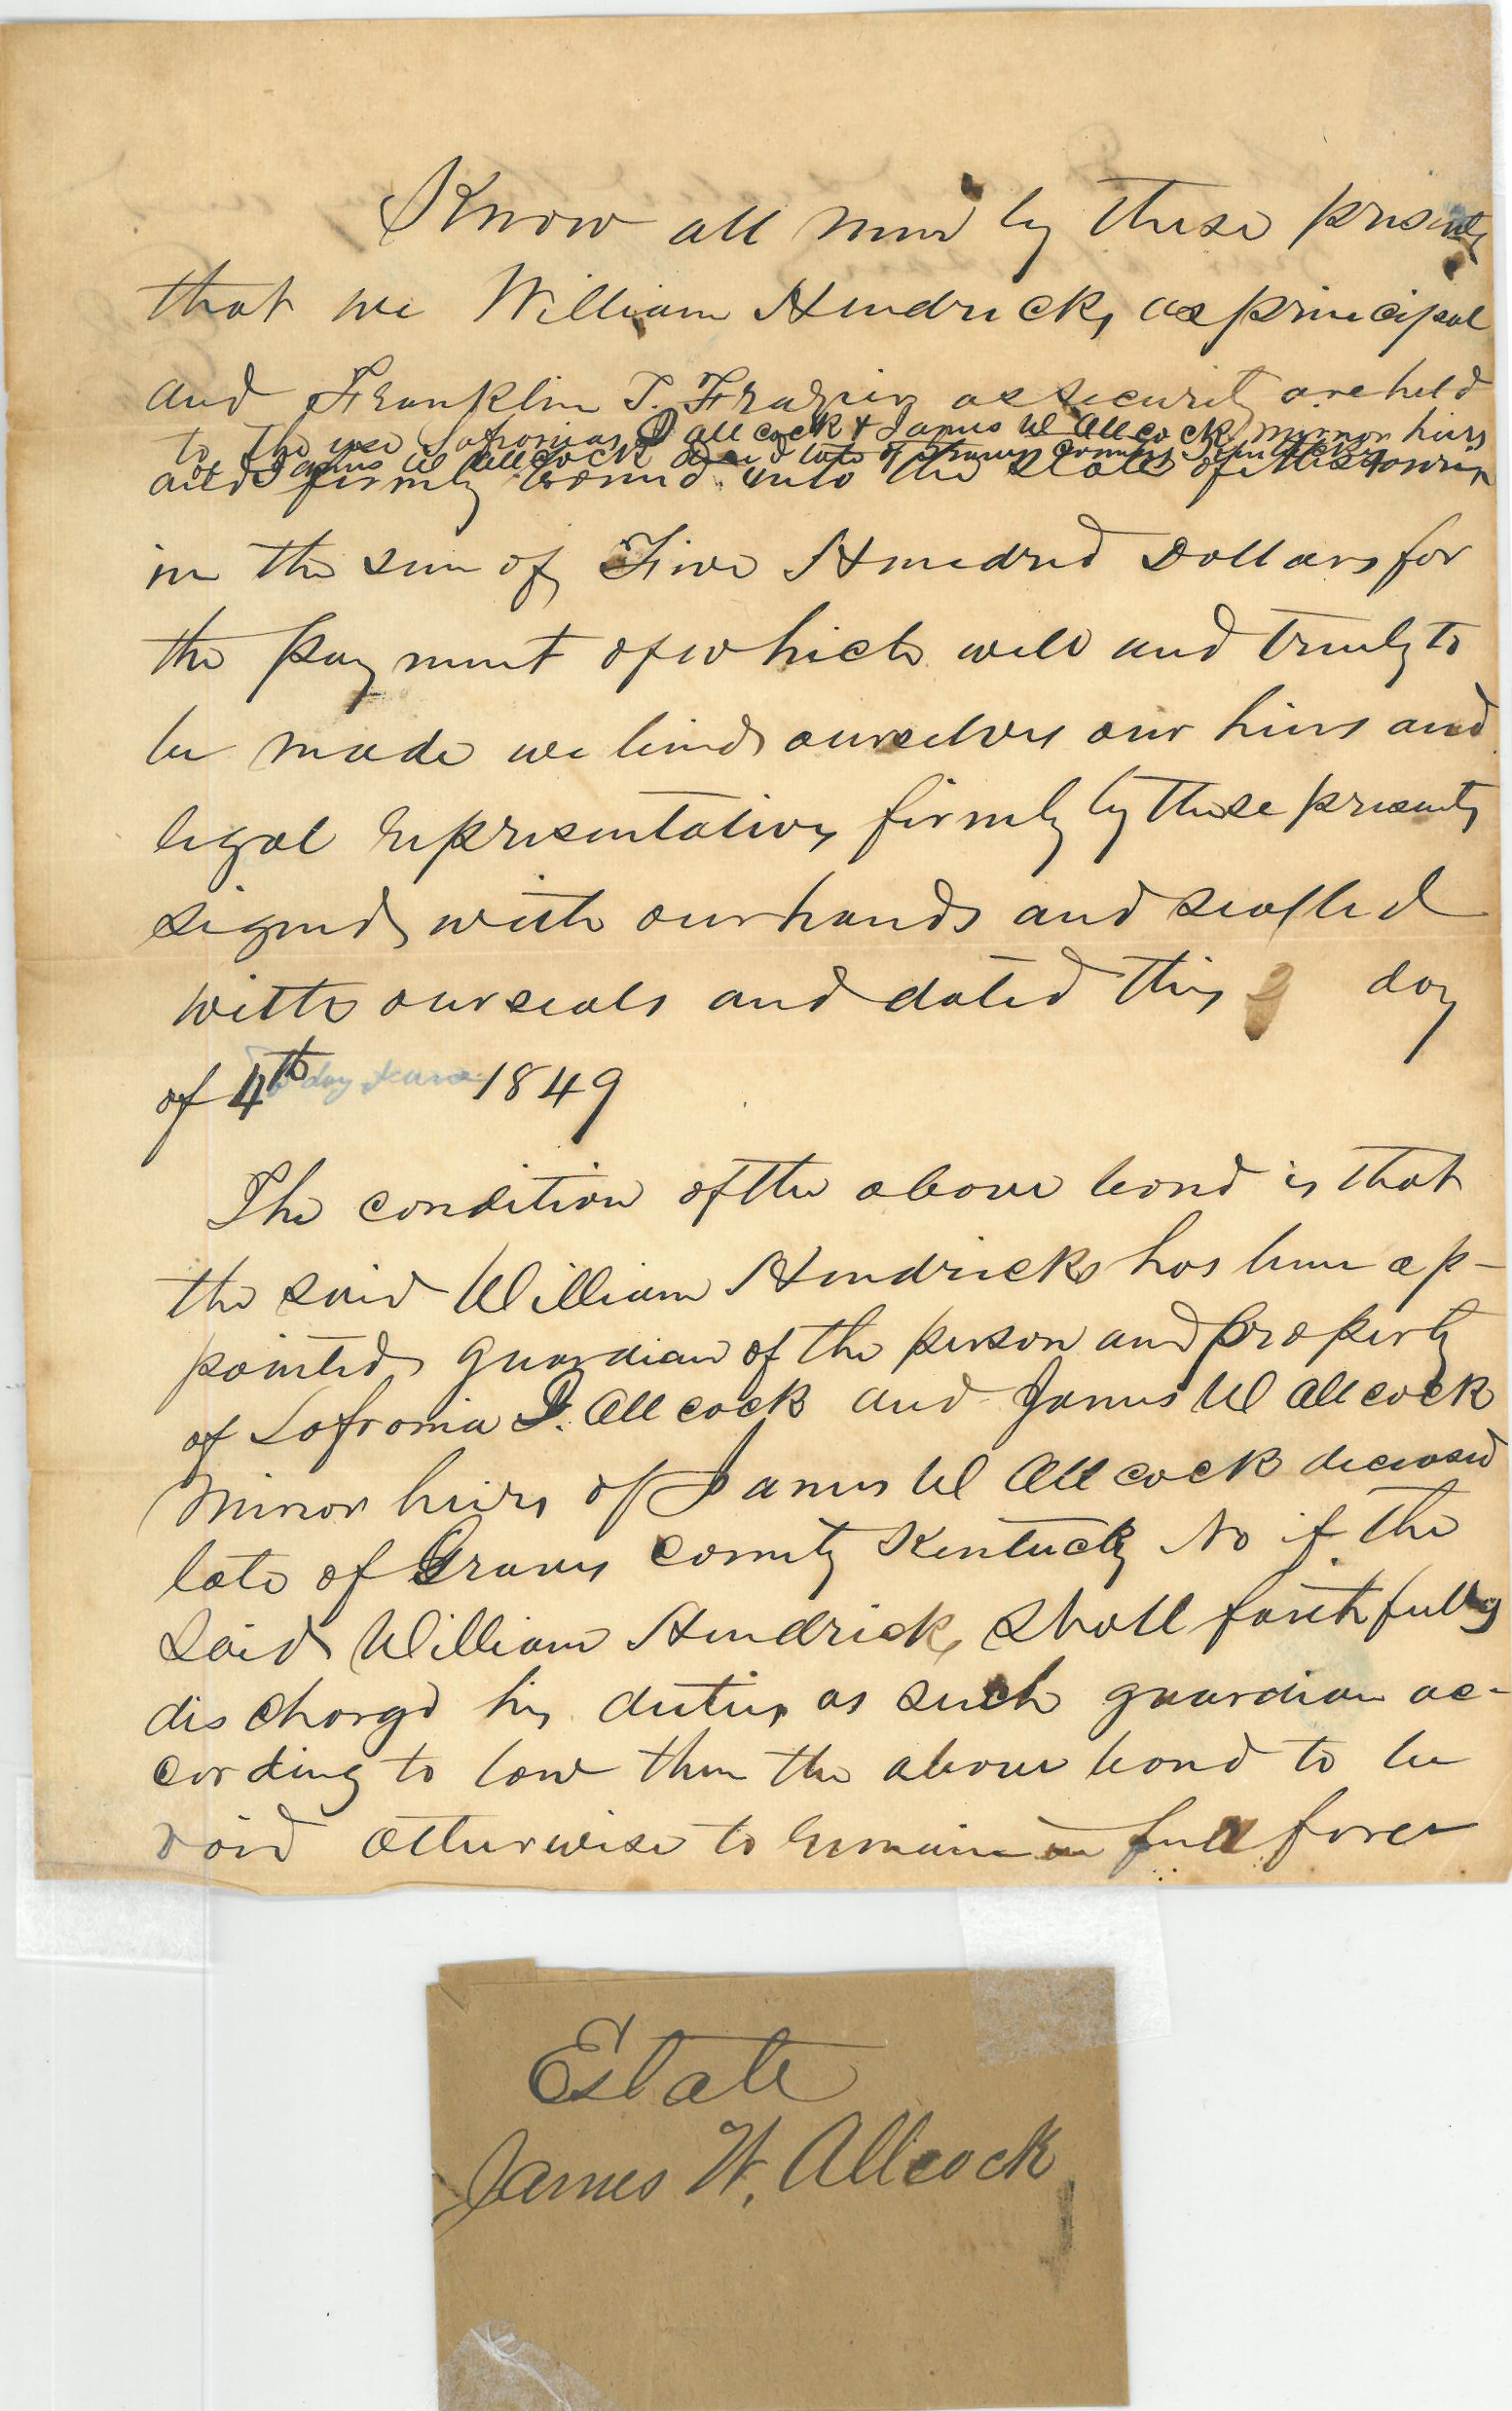 Know all men by these presents
that we William Hendricks as principal
and Franklin T. Frazier as security are held
to the use Sofronia D Allcock & James W Allcock minor heirs
of James W Allcock decd late of Graves County Kentucky
and firmly bound unto the State of Missouri
in the sum of Five Hundred Dollars for
the payment of which well and truly to
be made we bind ourselves our heirs and
legal representatives firmly by these presents
signed with our hands and sealled
with our seals and dated this day
of 4th day 1849
The condition of the above bond is that
the said William Hendricks has been ap-
pointed guardian of the person and property
of Sofronia D. Allcock and James W Allcock
Minor heirs of James W Allcock deceased
late of Graves County Kentucky No if the
said William Hendricks shall faithfully
discharge his duties as such guardian ac-
cording to law then the above bond to be
void otherwise to remain in full force
Estate
James W. Allcock